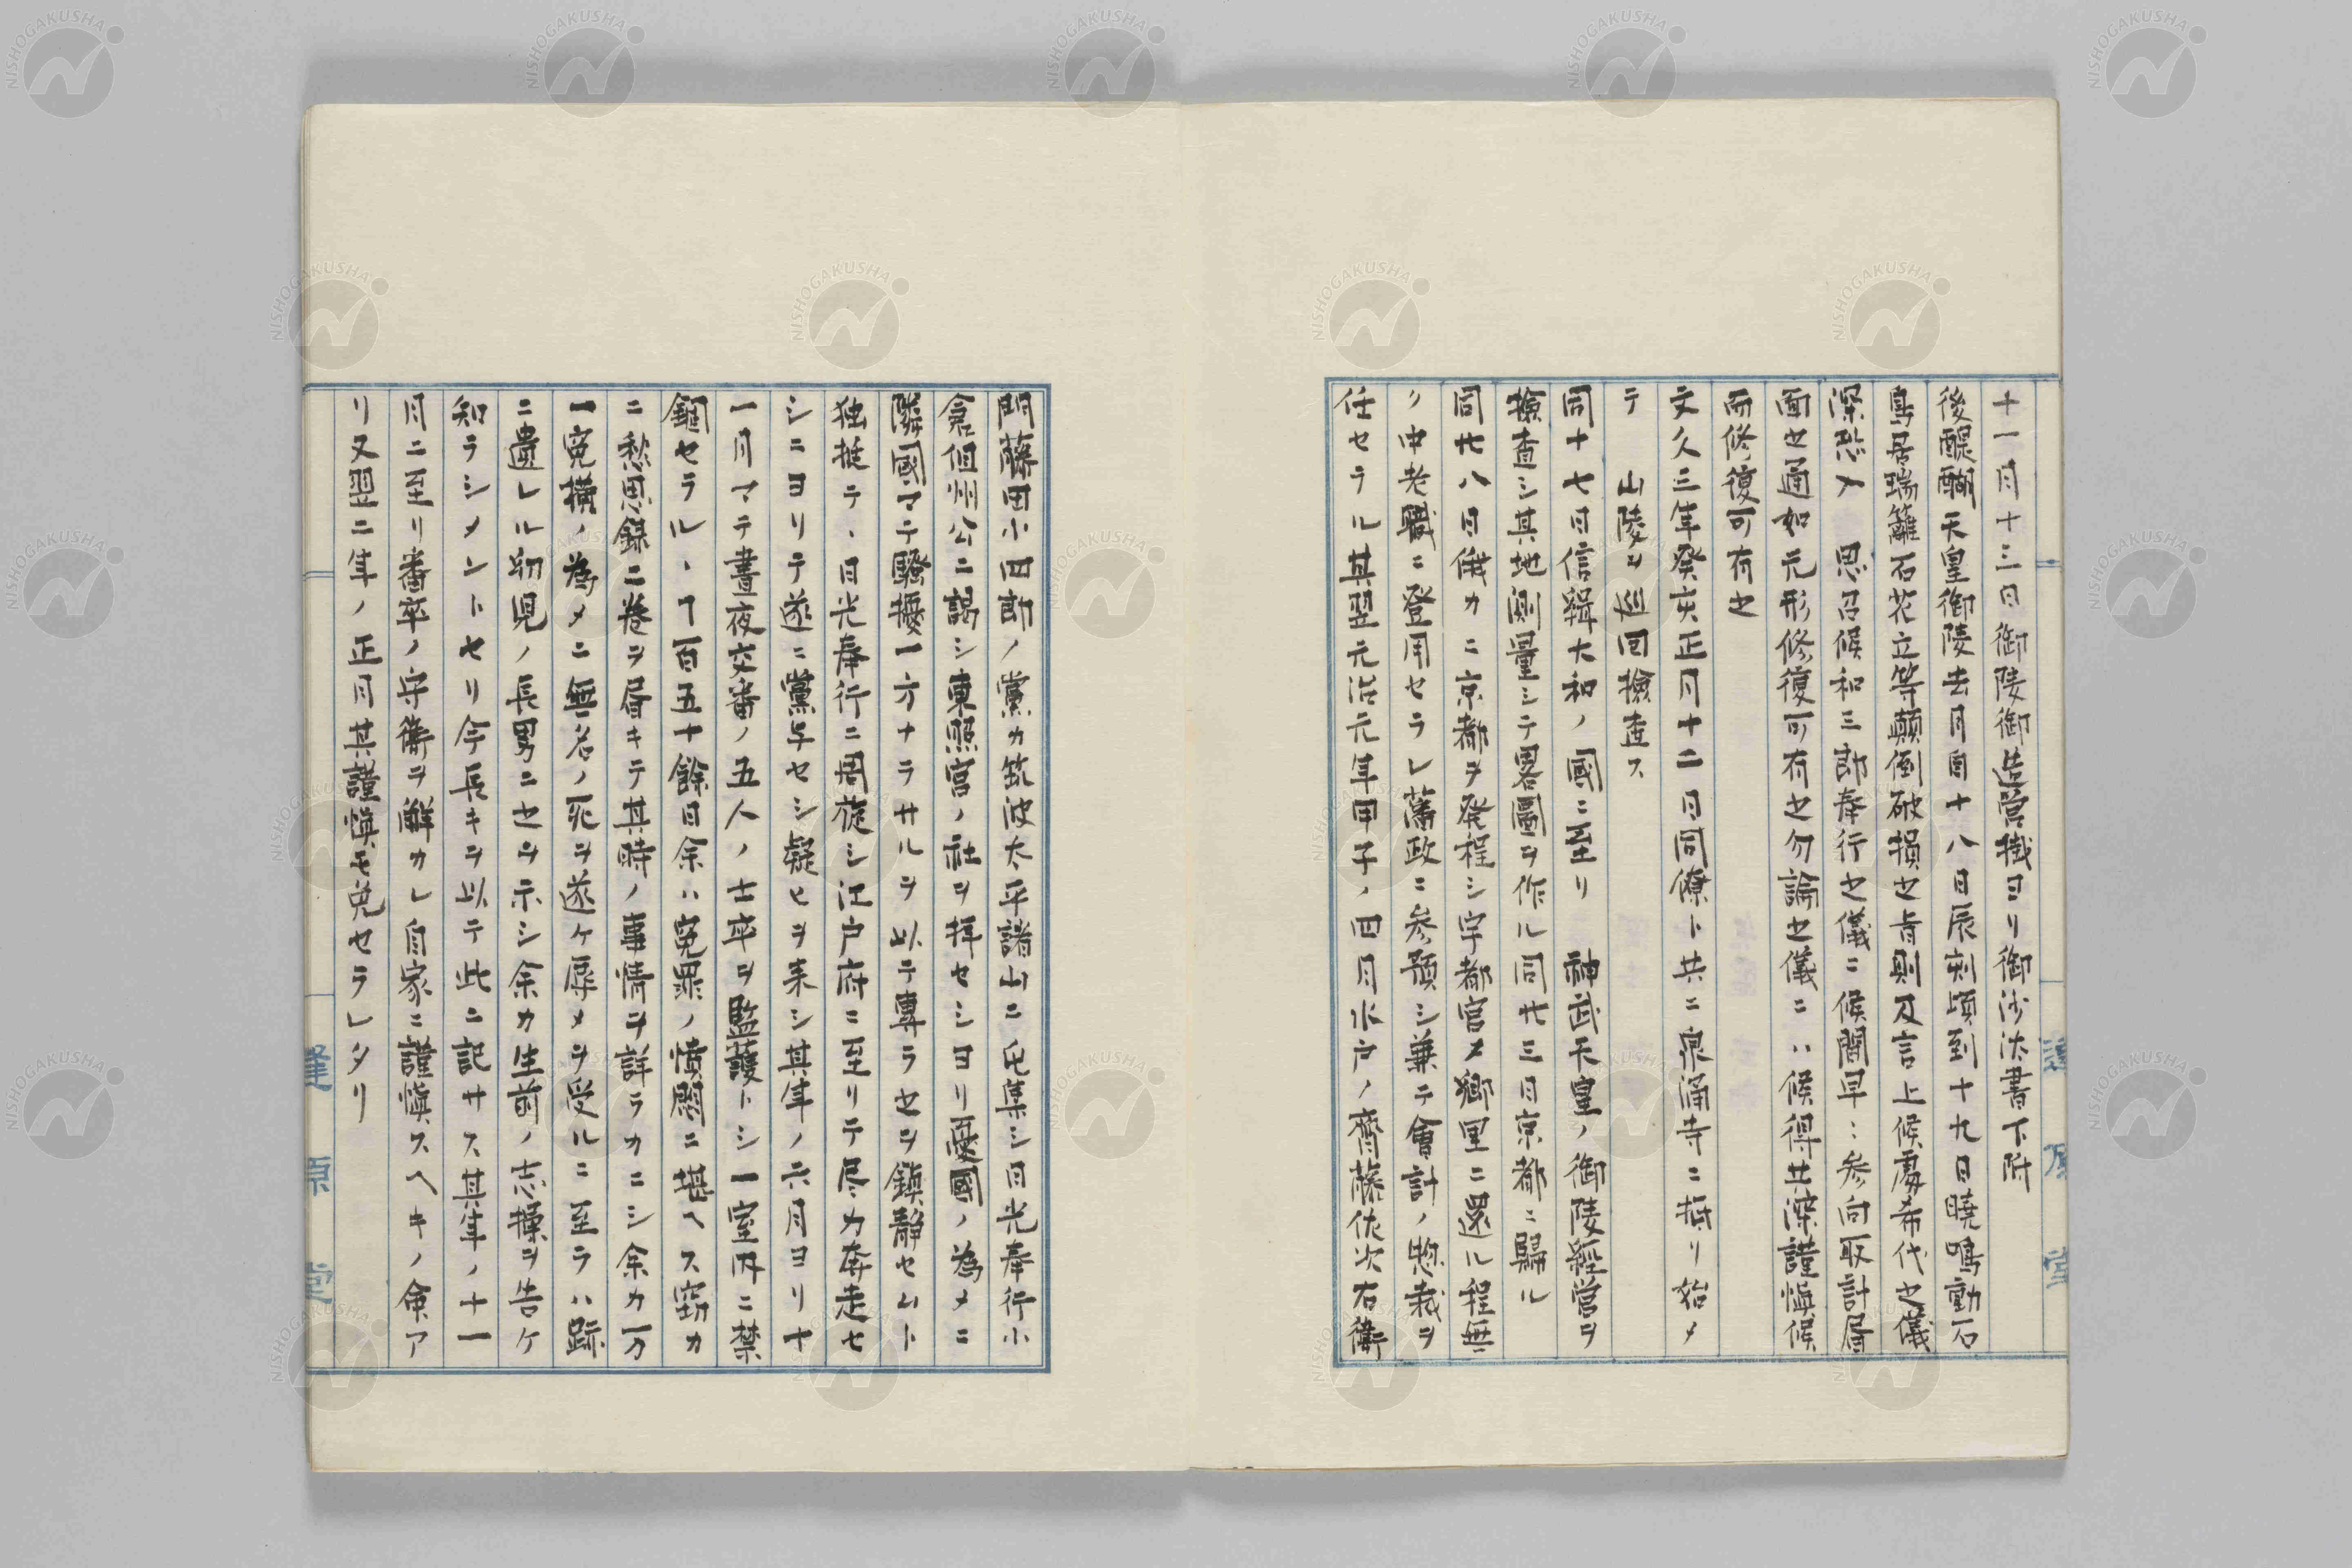 十一月十三日御陵御造営掛ヨリ御沙汰書下附
後醍醐天皇御陵去月自十八日辰刻頃到十九日暁鳴動石
鳥居瑞籬石花立等顛倒破損之旨則及言上候處希代之儀
深恐ヌ　思召候和三郎奉行之儀ニ候間早ミ参向取計屆
面之通如元形修復可有之勿論之儀ニハ候得共深謹慎候
而修復可有之
文久三年癸亥正月十二日同僚ト共ニ泉涌寺ニ抵リ始メ
テ　山陵ヲ巡回撿査ス
同十七日信緝大和ノ國ニ至リ　神武天皇ノ御陵經営ヲ
撿査シ其地測量シテ畧圖ヲ作ル同廿三日京都ニ歸ル
同廿八日俄カニ京都ヲ発程シ宇都宮ヌ郷里ニ還ル程無
ク中老職ニ登用セラレ藩政ニ参預シ兼テ會計ノ惣裁ヲ
任セラル其翌元治元年甲子ノ四月水戸ノ齊藤佐次右衛
門藤田小四郎ノ黨カ筑波太平諸山ニ屯集シ日光奉行小
倉但州公ニ謁シ東照宮ノ社ヲ拝セシヨリ憂國ノ為メニ
隣國マテ騒擾一方ナラサルヲ以テ専ラ之ヲ鎮静セムト
独挺テヽ日光奉行ニ周旋シ江戸府ニ至リテ尽力奔走セ
シニヨリテ遂ニ黨与セシ疑ヒヲ来シ其年ノ六月ヨリ十
一月マテ晝夜交番ノ五人ノ士卒ヲ監護トシ一室内ニ禁
錮セラルヽ丁百五十餘日余ハ寃罪ノ憤悶ニ堪ヘス窃カ
ニ愁思録二巻ヲ屆キテ其時ノ事情ヲ詳ラカニシ余カ万
一寃横ノ為メニ無名ノ死ヲ遂ケ辱メヲ受ルニ至ラハ跡
ニ遺レル幼児ノ長男ニ之ヲ示シ余カ生前ノ志操ヲ告ケ
知ラシメントセリ今長キヲ以テ此ニ記サス其年ノ十一
月ニ至リ番卒ノ守衛ヲ解カレ自家ニ謹慎スヘキノ命ア
リ又翌二年ノ正月其謹慎モ免セラレタリ
逢原堂